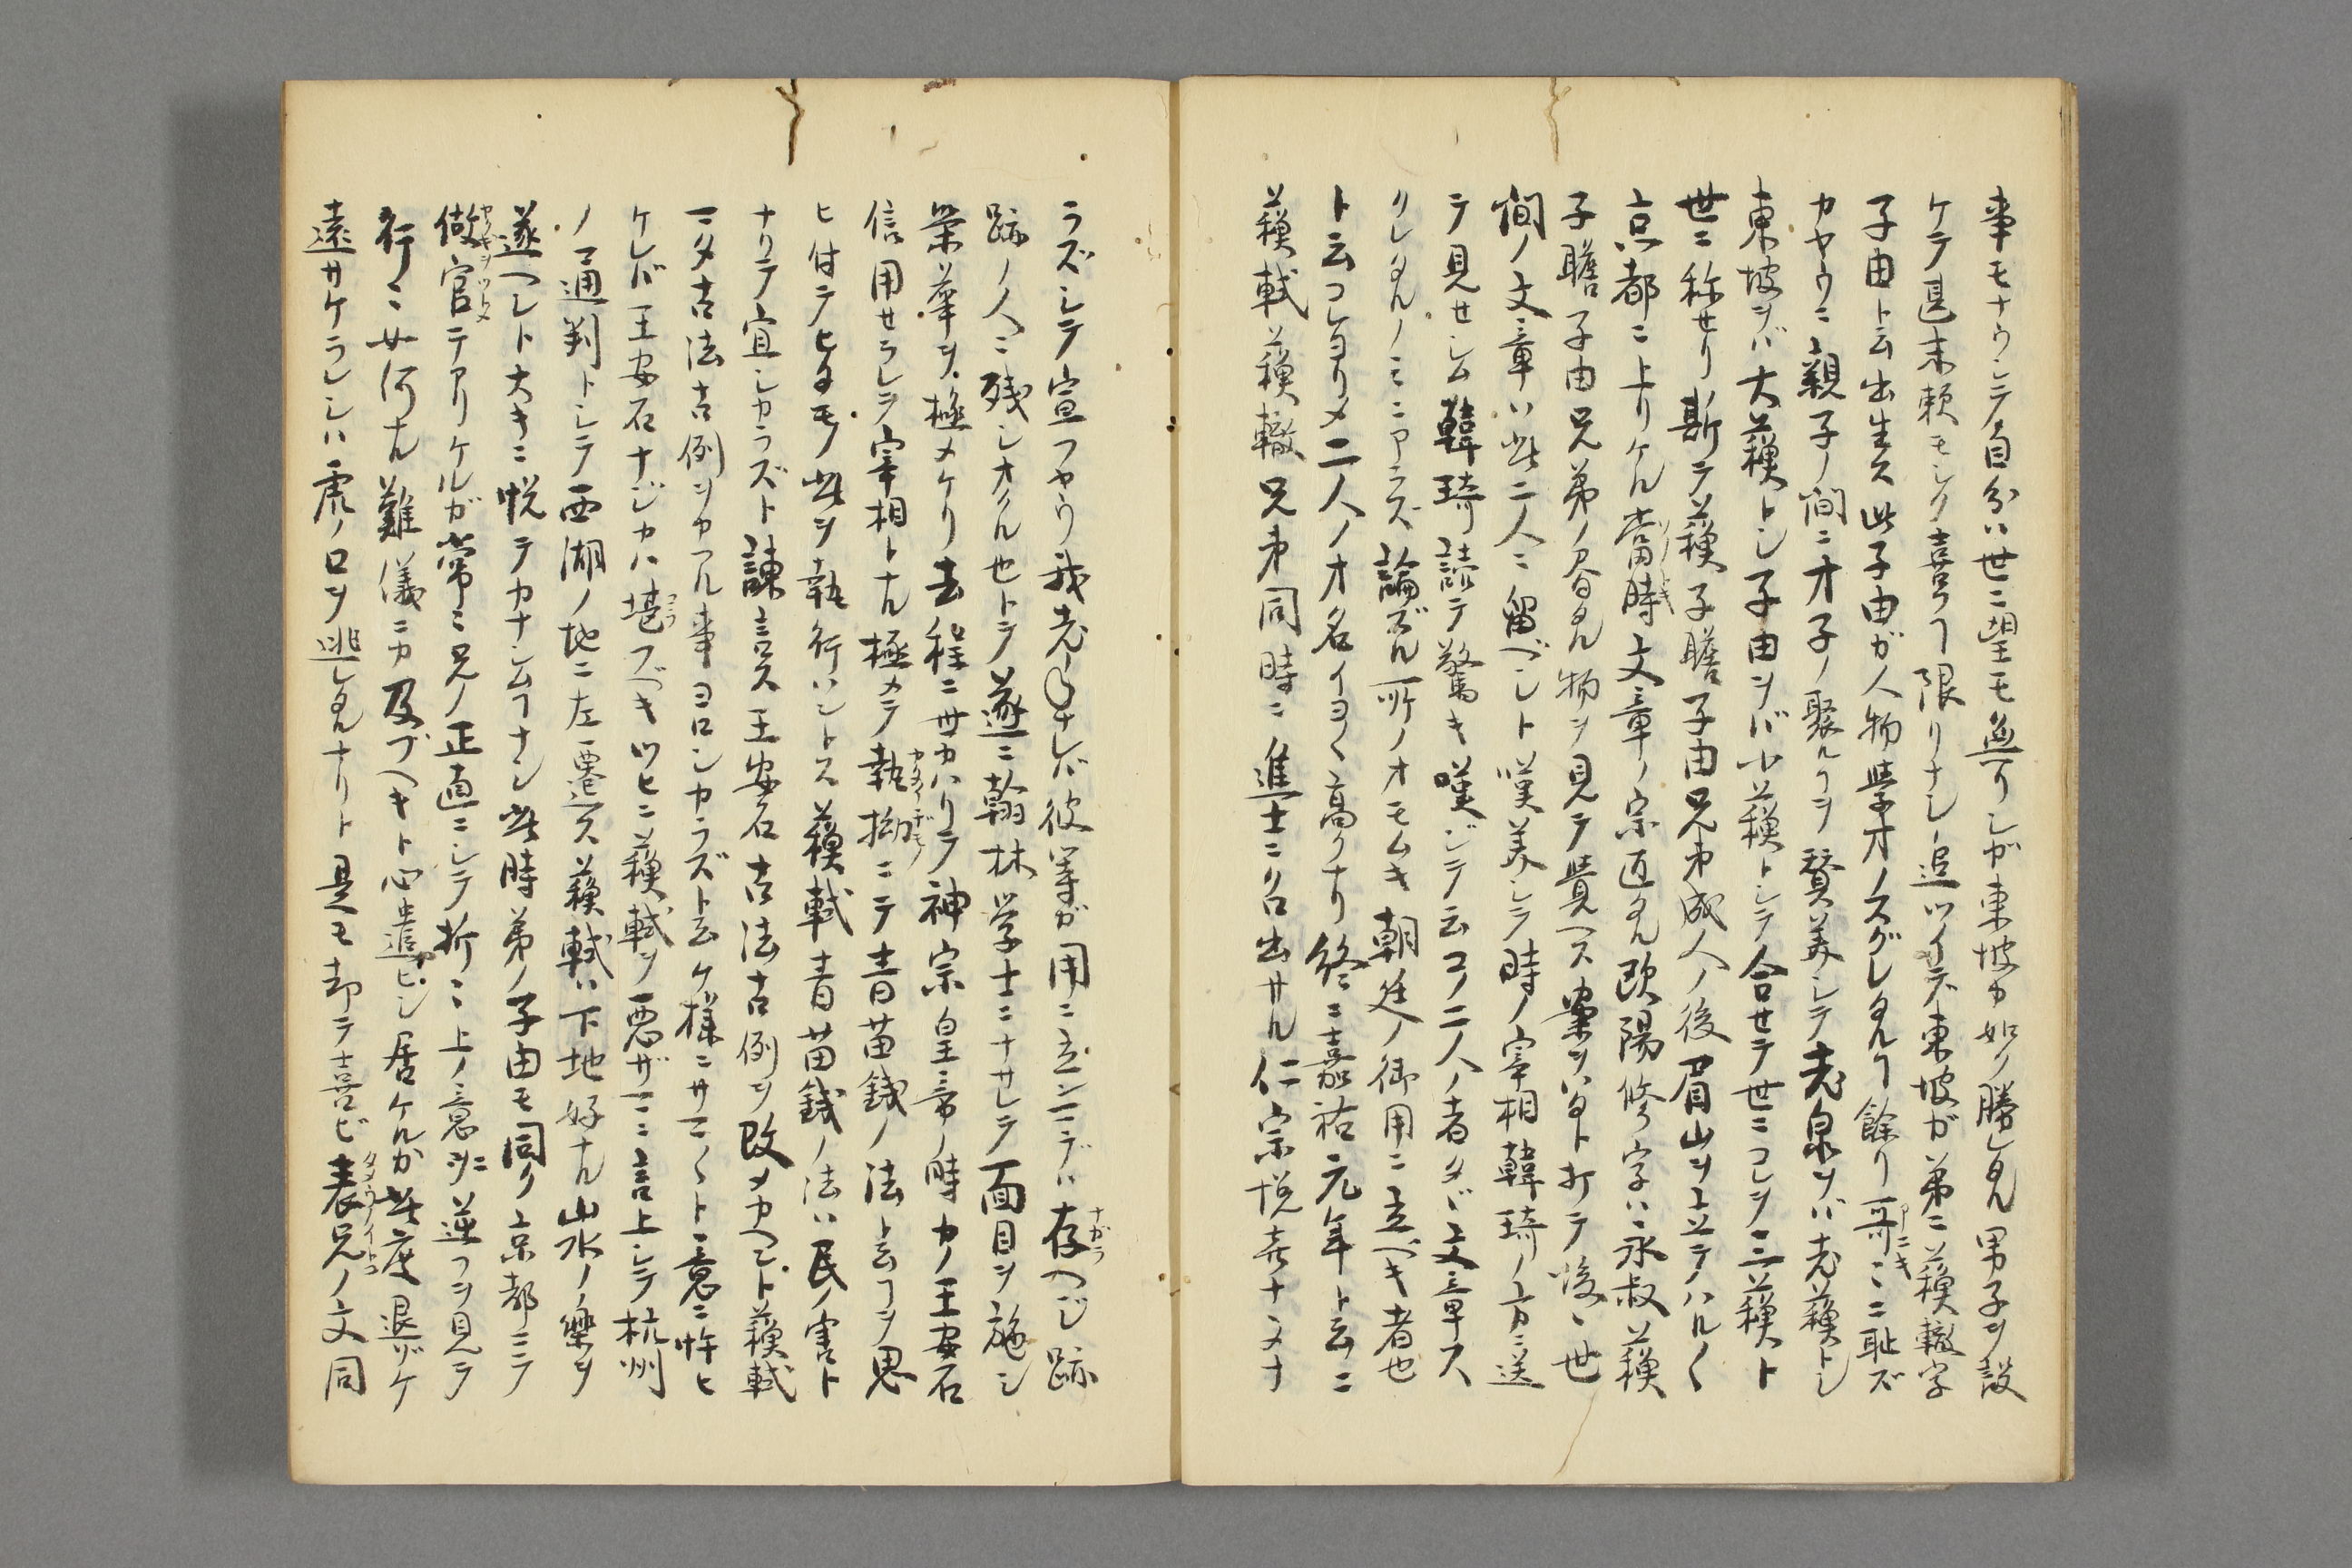 事モナウシテ自分ハ世ニ望モ無リシガ東坡カ如ノ勝レタル男子ヲ設
ケテ甚末頼モシク喜フヿ限リナシ追ツイデ東坡ガ弟ニ蘓轍字
子由ト云出生ス此子由ガ人物学才ノスグレタルヿ餘リ哥アニキニニ耻ズ
カヤウニ親子ノ間ニ才子ノ聚ルヿヲ賛美シテ老泉ヲバ老蘓トシ
東坡ヲバ大蘓トシ子由ヲバ小蘓トシテ合セテ世ニコレヲ三蘓ト
世ニ称セリ斯テ蘓子瞻子由兄弟成人ノ後眉山ヲ立テハル〱
京都ニ上リケル當時文章ノ宗匠タル欧陽修字ハ永叔蘓
子瞻子由兄弟ノ書タル物ヲ見テ覺ヘス案ヲハタト打テ後世
間ノ文章ハ此二人ニ留ベシト嘆美シテ時ノ宰相韓琦ノ方ニ送
テ見セシム韓琦読テ驚キ嘆ジテ云コノ二人ノ者タヾ文章ス
クレタルノミニアラズ論ズル所ノオモムキ朝廷ノ御用ニ立ベキ者也
ト云コレヨリメ二人ノ才名イヨ〱高クナリ終ニ嘉祐元年ト云ニ
蘓軾蘓轍兄弟同時ニ進士ニ召出サル仁宗悦喜ナヽメナ
ラズシテ宣フヤウ我老タレバ彼等ガ用ニ立ンマデハ存ナガラヘジ跡
跡ノ人ニ残シオクル也トテ遂ニ翰林学士ニナサレテ面目ヲ施シ
栄華ヲ極メケリ去程ニ世カハリテ神宗皇帝ノ時カノ王安石
信用セラレテ宰相トナル極メテ執拗ニテ青苗銭ノ法ト云ヿヲ思
ヒ付テヒタモノ此ヲ執行ハントス蘓軾青苗銭ノ法ハ民ノ害ト
ナリテ宜シカラズト諌言ス王安石古法古例ヲ改メカヘント蘓軾
マタ古法古例ヲカフル事ヨロシカラズト云ケ様ニサマ〱ト意ニ忤ヒ
ケレバ王安石ナジカハ堪コラフベキツヒニ蘓軾ヲ悪ザマニ言上シテ杭州
ノ通判トシテ西湖ノ地ニ左遷ス蘓軾ハ下地好ナル山水ノ樂ヲ
遂ヘシト大キニ悦テカナシムヿナシ此時弟ノ子由モ同ク京都ニテ
做官ヤクギヲツトメテアリケルガ常ニ兄ノ正直ニシテ折ニ上ノ意ニ逆フヲ見テ
行ニ如何ナル難儀ニカ及ブヘキト心遣ヒシ居ケルカ此度退ゾケ
遠サケラレシハ虎ノ口ヲ逃レタルナリト是モ却テ喜ビ表兄ノ文同